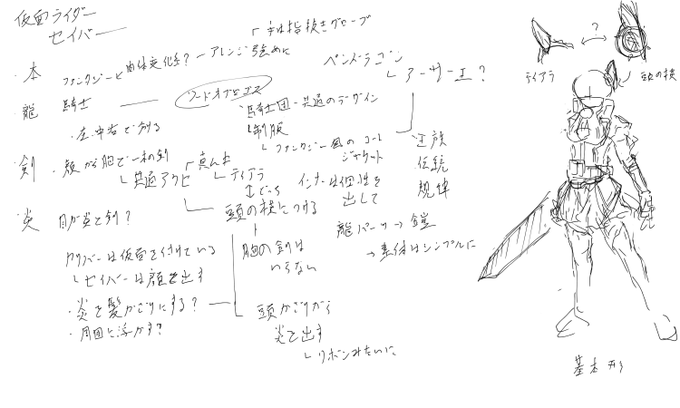 仮面ライダー
セイバー
全体指抜きグローブ
・本 ファンタジーと肉体変化系? ー アレンジ強めに
ペンドラゴン
アーサー王?
・龍 騎士 ー ソードオブロゴス
騎士団・共通のデザイン
制服
・左・中・右で分ける
ファンタジー風のコート
ジャケット
・剣 ・顔か胸で一本の剣 真ん中
共通アクセ
ティアラ
頭の横につける
インナーは個性を
出して
近族
伝統
規律
・炎 目が炎と剣?
胸の剣は
いらない
龍パーツ→鎧
→素体はシンプルに
カリバーは仮面を付けている
セイバーは顔を出す
・炎を髪かざりにする?
・周囲に浮かす?
頭かざりから
炎を出す
リボンみたいに
?
ティアラ
頭の横
基本形